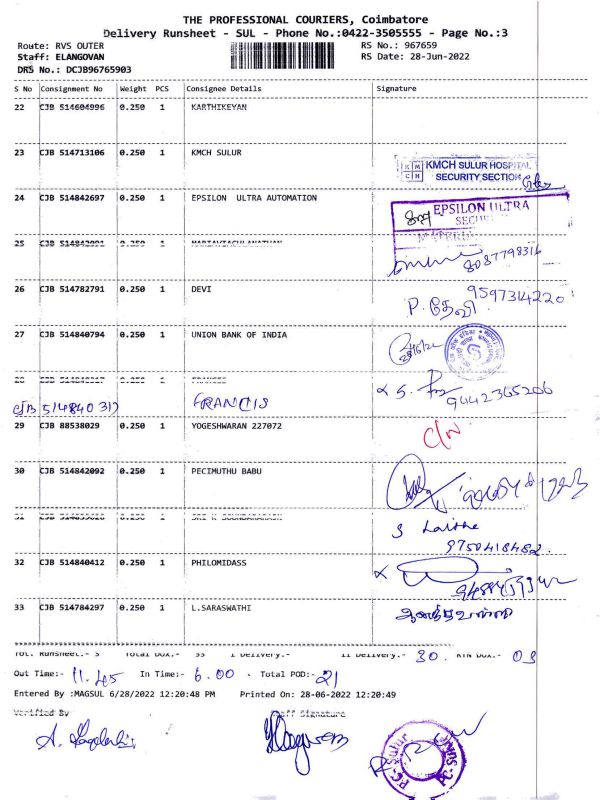 THE PROFESSIONAL COURIERS, Coimbatore
Delivery Runsheet - SUL - Phone No.:0422-3505555 - Page No.:3
Route: RVS OUTER RS No.: 967659
Staff: ELANGOVAN RS Date: 28-Jun-2022
DRS No.: DCJB96765903
S No Consignment No Weight PCS Consignee Details Signature
22 CJB 514604996 0.250 1 KARTHIKEYAN
23 CJB 514713106 0.250 1 KMCH SULUR
KMCH SULUR HOSPITAL
SECURITY SECTION
24 CJB 514842697 0.250 1 EPSILON ULTRA AUTOMATION
EPSILON ULTRA
25 CJB 0.250 1
8087798316
26 CJB 514782791 0.250 1 DEVI
P. தேவி 9597314220
27 CJB 514840794 0.250 1 UNION BANK OF INDIA
28 CJB 0.250 1 FRANCIS
CJB 514840317 FRANCIS
9442365206
29 CJB 88538029 0.250 1 YOGESHWARAN 227072
C/N
30 CJB 514842092 0.250 1 PECIMUTHU BABU
31 CJB 0.250 1
S Laithe
9750418482
32 CJB 514840412 0.250 1 PHILOMIDASS
33 CJB 514784297 0.250 1 L.SARASWATHI
Tot. Runsheet.- 3 Total Dox.- 33 Delivery.- 30. RTN Dox.- 03
Out Time:- 11.45 In Time:- 6.00 - Total POD:- 21
Entered By :MAGSUL 6/28/2022 12:20:48 PM Printed On: 28-06-2022 12:20:49
Verified By Staff Signature
PC-Sulur